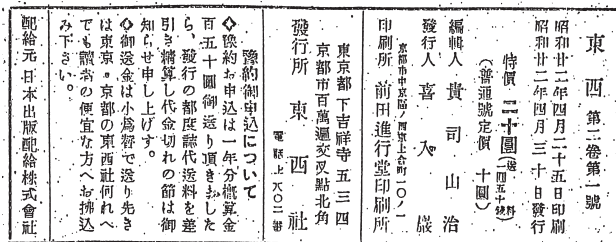 東西 第二巻第一號
昭和廿二年四月二十五日印刷
昭和廿二年四月三十日發行
特價 二十圓(送料四五十錢)
(普通號定價 十圓)
編輯人 貴司山治
發行人 喜入巖
京都市中京區
印刷所 前田進行堂印刷所
東京都下吉祥寺五三四
京都市百萬遍交叉點北角
發行所 東西社
電話上八〇二番
豫約御申込について
◇豫約お申込は一年分概算金
百五十圓御送り頂きました
ら、發行の都度誌代送料を差
引き精算し代金切れの節は御
知らせ申し上げす。
◇御送金は小爲替で送り先き
は東京・京都の東西社何れへ
でも讀者の便宜な方へお拂込
み下さい。
配給元 日本出版配給株式會社